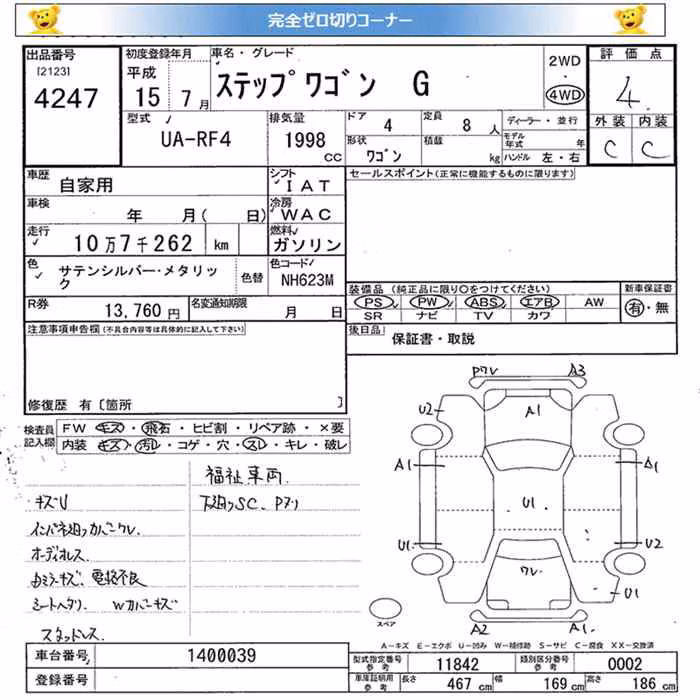 完全ゼロ切りコーナー
出品番号
[2123]
4247
初度登録年月
平成
15 年 7 月
車名・グレード
ステップワゴン G
2WD
・
4WD
評価点
4
外装 内装
C C
型式
UA-RF4
排気量
1998
CC
ドア
4
定員
8 人
形状
ワゴン
積載
kg
ディーラー・並行
モデル年式 年
ハンドル 左・右
車歴
自家用
シフト
IAT
車検
年 月( 日)
冷房
WAC
走行
10万7千262 km
燃料
ガソリン
色
サテンシルバー・メタリック
色替
色コード
NH623M
R券
13,760 円
名変通知期限
月 日
セールスポイント(正常に機能するものに限ります)
装備品 (純正品に限り〇をつけてください)
PS PW ABS エアB AW
SR ナビ TV カワ
新車保証書
有・無
後日品
保証書・取説
注意事項申告欄(不具合内容等は具体的に記入して下さい)
修復歴 有〔箇所 〕
検査員記入欄
FW キズ・飛石・ヒビ割・リペア跡・×要
内装 キズ・汚レ・コゲ・穴・スレ・キレ・破レ
福祉車両
下廻りSC、Pアリ
キズU
インパネ廻りカバーワレ、
オーディオレス
電格不良
シートヘタリ Wカバーキズ
スタッドレス
Pワレ
A3
U2
A1
A1
A1
U1
U1
U2
ワレ
U1
A2
A1
スペア
A-キズ E-エクボ U-凹み W-補修跡 S-サビ C-腐食 XX-交換済
車台番号
1400039
登録番号
型式指定番号参考
11842
類別区分番号参考
0002
車庫証明用参考
長さ 467 cm
幅 169 cm
高さ 186 cm